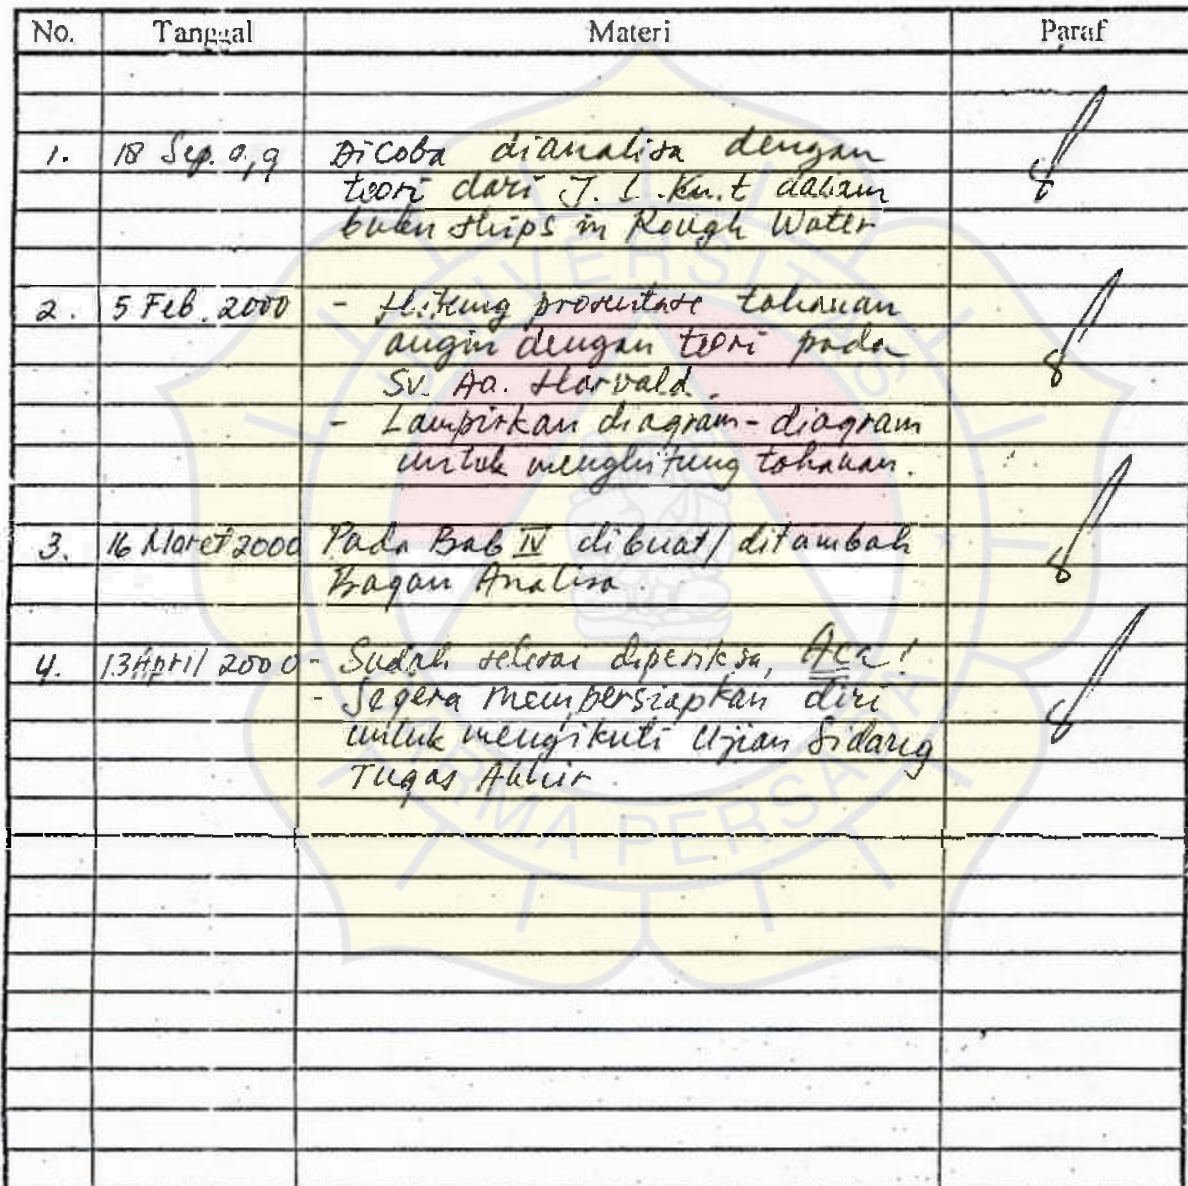 No. Tanggal Materi Paraf
1. 18 Sep. 9,9 Dicoba dianalisa dengan
teori dari J. L. Kent dalam
buku Ships in Rough Water
2. 5 Feb. 2000 - Hitung prosentase tahanan
angin dengan teori pada
Sv. Aa. Harvald.
- Lampirkan diagram-diagram
untuk menghitung tahanan.
3. 16 Maret 2000 Pada Bab IV dibuat/ditambah
Bagan Analisa.
4. 13 April 2000 - Sudah selesai diperiksa, Acc!
- Segera mempersiapkan diri
untuk mengikuti Ujian Sidang
Tugas Akhir
UNIVERSITAS
DARMA PERSADA